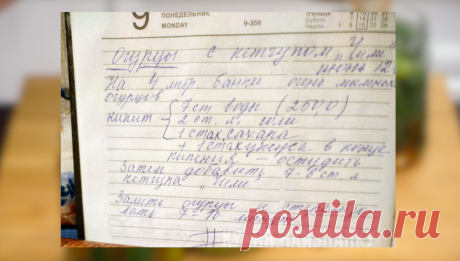 9
ПОНЕДЕЛЬНИК
MONDAY
9-356
Огурцы с кетчупом „Чили"
июнь 12
На 4 литр. банки
огурцов
кипит
7 ст воды (2500)
2 ст. л. соли
1 стак. сахара
+ 1 стак уксуса в конце
кипения — остудить
Затем добавить 7-8 ст. л
кетчупа „Чили
Залить огурцы и
вать 7-10
postila.ru